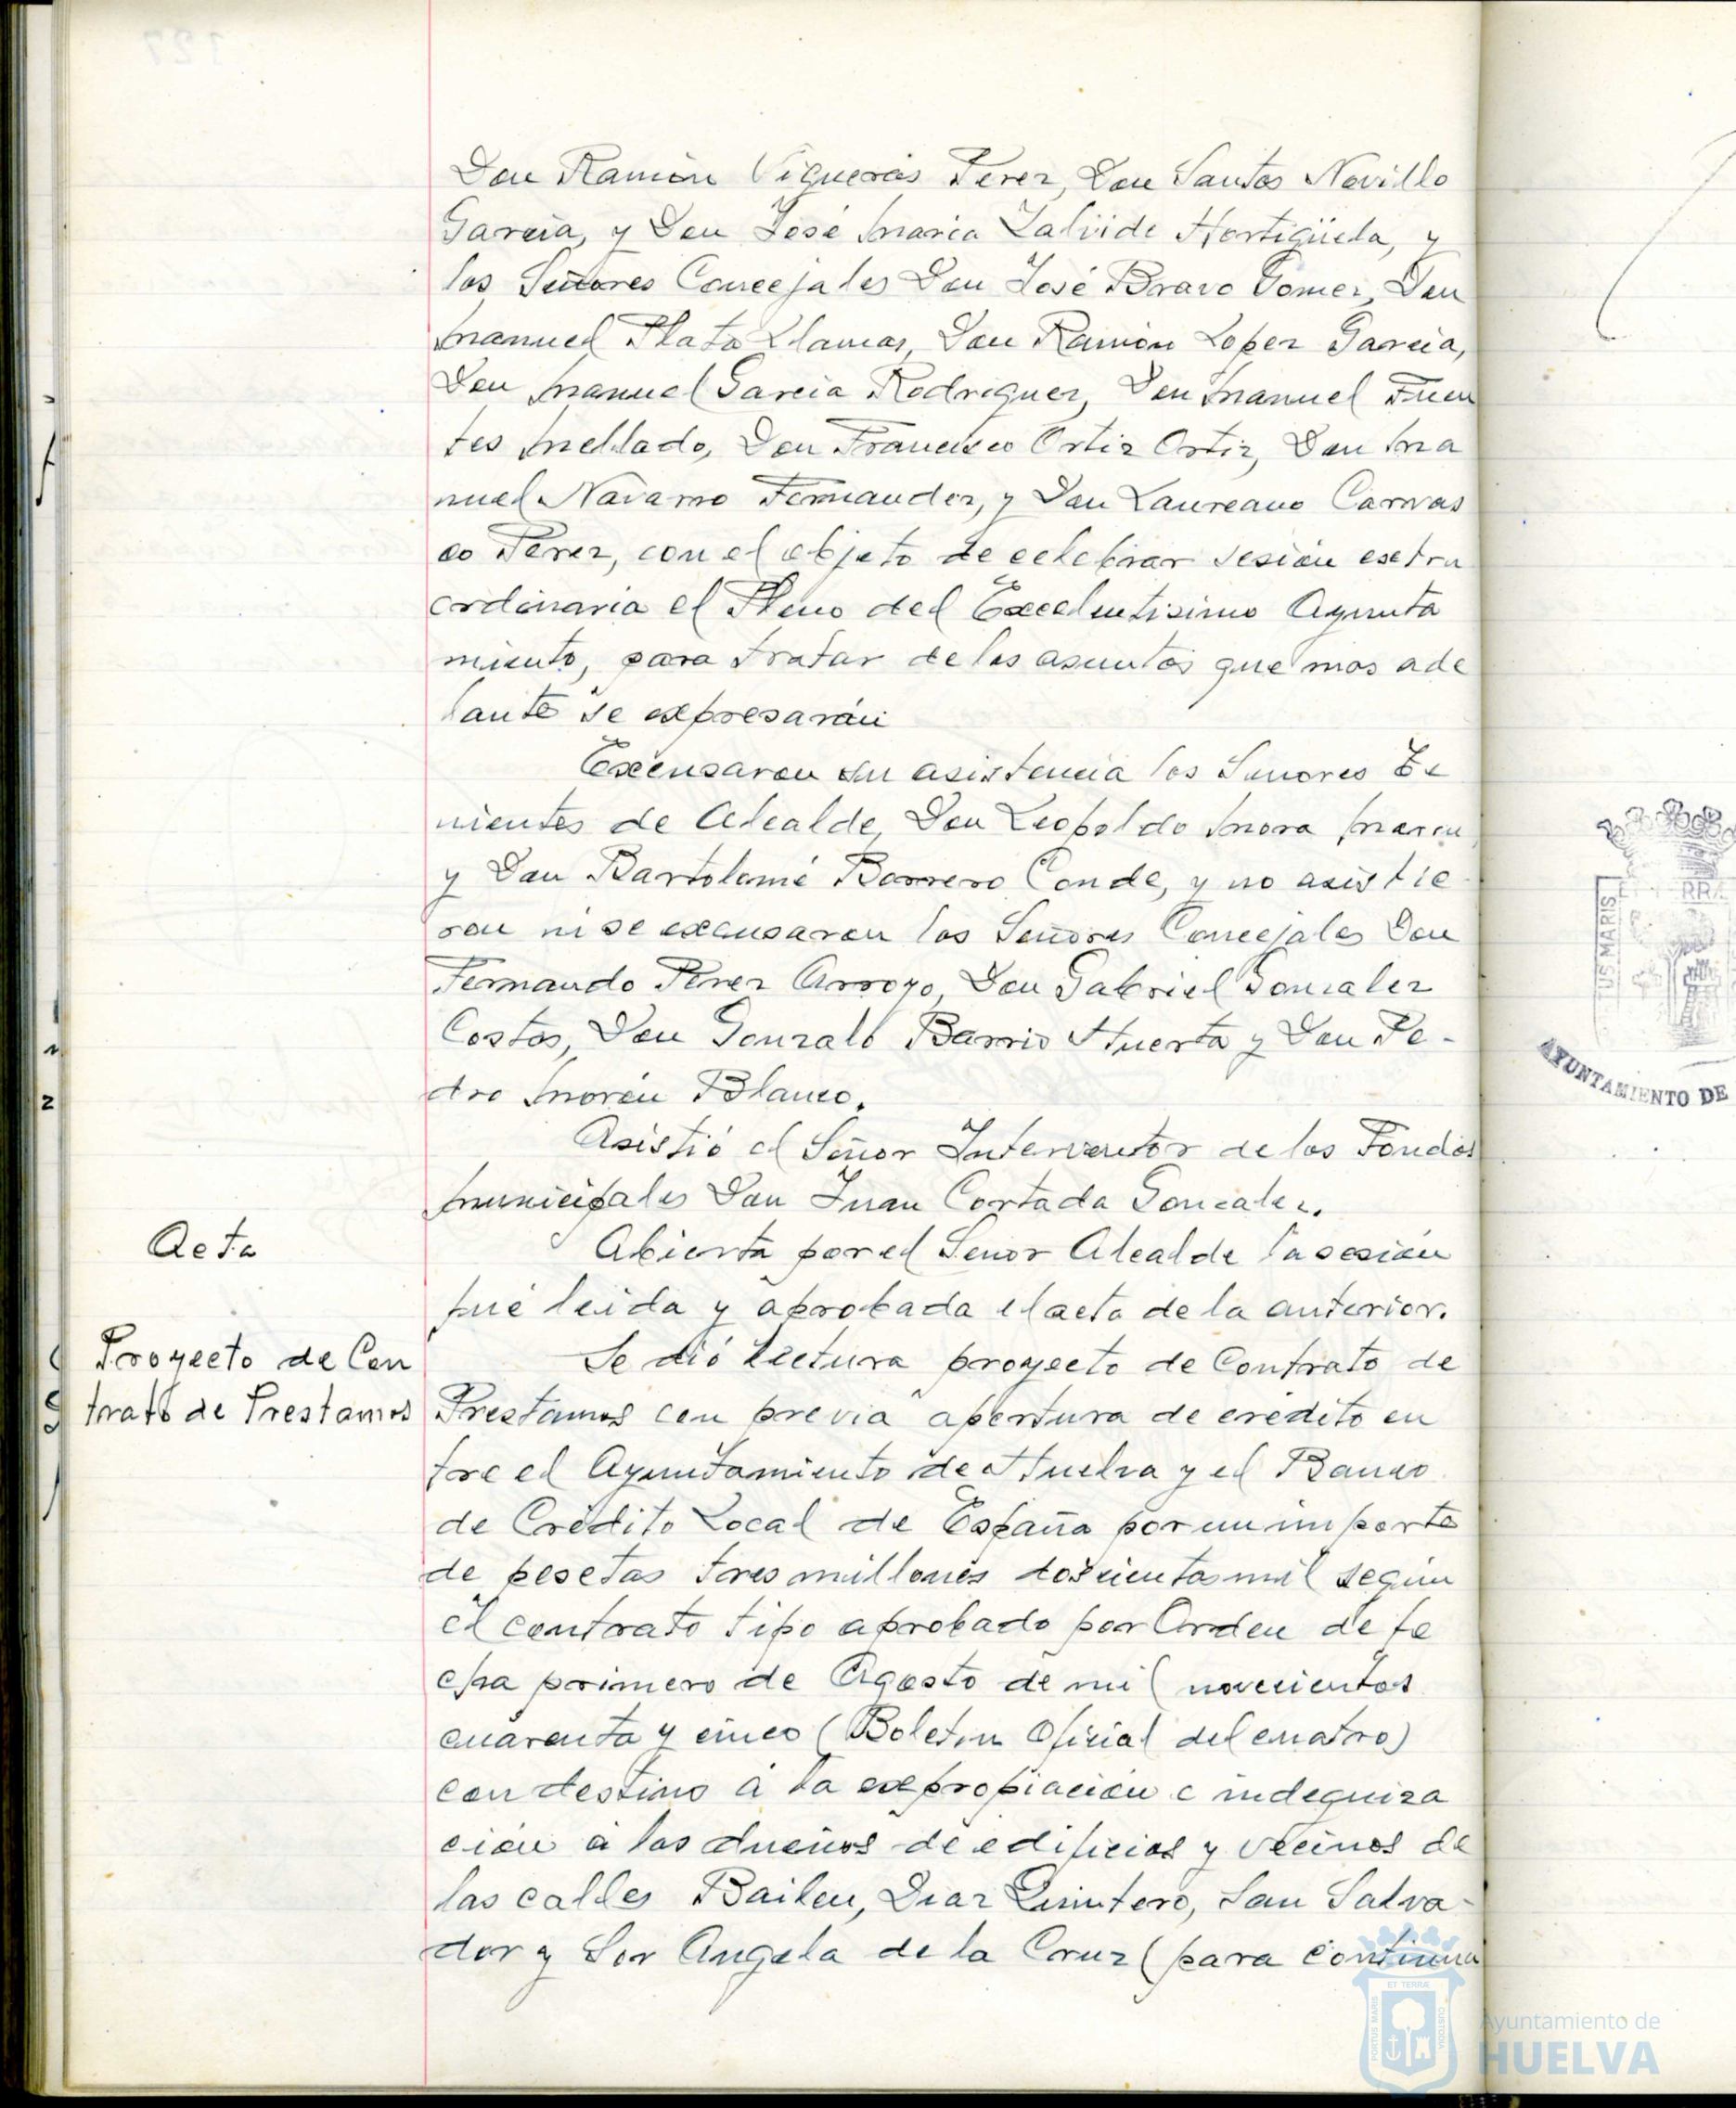 Don Ramón Vigueras Perez, Don Santos Novillo
Garcia, y Don José Maria Zalvide Hortigüela, y
los Señores Concejales Don José Bravo Gomez, Don
Manuel Plata Llamas, Don Ramón Lopez Garcia,
Don Manuel Garcia Rodriguez, Don Manuel Fuen
tes Mellado, Don Francisco Ortiz Ortiz, Don Ma
nuel Navarro Fernandez, y Don Laureano Carras
co Perez, con el objeto de celebrar sesión extra
ordinaria el Pleno del Excelentisimo Ayunta
miento, para tratar de los asuntos que mas ade
lante se expresarán
Excusaron su asistencia los Señores Te
nientes de Alcalde, Don Leopoldo Mora Marin
y Don Bartolomé Borrero Conde, y no asistie
ron ni se excusaron los Señores Concejales Don
Fernando Perez Arroyo, Don Gabriel Gonzalez
Costas, Don Gonzalo Barrio Huerta y Don Pe-
dro Moron Blanco.
Asistió el Señor Interventor de los Fondos
Municipales Don Juan Cortada Gonzalez.
Acta
Abierta por el Señor Alcalde la sesión
fué leida y aprobada el acta de la anterior.
Proyecto de Con
trato de Prestamos
Se dió lectura proyecto de Contrato de
Prestamos con previa apertura de credito en
tre el Ayuntamiento de Huelva y el Banco
de Crédito Local de España por un importe
de pesetas tres millones doscientas mil según
el contrato tipo aprobado por Orden de fe
cha primero de Agosto de mil novecientos
cuarenta y cinco (Boletin Oficial del cuatro)
con destino á la expropiación e indegniza
ción a los dueños de edificios y vecinos de
las calles Bailen, Diaz Quintero, San Salva-
dor y Sor Angela de la Cruz (para continua
US MARIS
ET TERRA
AYUNTAMIENTO DE
ET TERRÆ
PORTUS MARIS
CUSTODIA
Ayuntamiento de
HUELVA